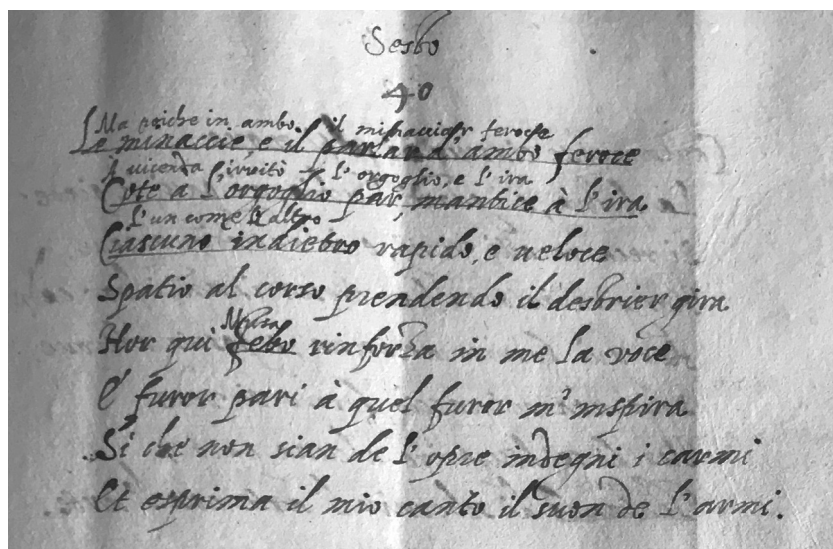 Sesto
40
Ma poiche in ambo il minacciar feroce
Le minaccie, e il parlar d'ambo feroce
A vicenda irritò l'orgoglio, e l'ira
Cote a l'orgoglio par, mantice à l'ira
L'un come l'altro
Ciascuno indietro rapido, e veloce
Spatio al corso prendendo il destrier gira
Musa
Hor qui febo rinforza in me la voce
E furor pari à quel furor m'inspira
Sì che non sian de l'opre indegni i carmi
Et esprima il mio canto il suon de l'armi.